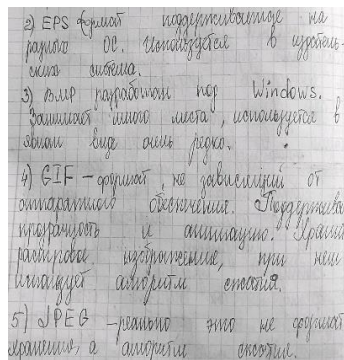 2) EPS формат поддерживаемые на
разных ОС. Используется в издатель-
ских система.
3) BMP разработан под Windows.
Занимает много места, используется в
явном виде очень редко.
4) GIF - формат, не зависящий от
аппаратного обеспечения. Поддержива
прозрачность и анимацию. Хранит
растровое изображение, при нем
использует алгоритм сжатия.
5) JPEG - реально это не формат
хранения, а алгоритм сжатие.